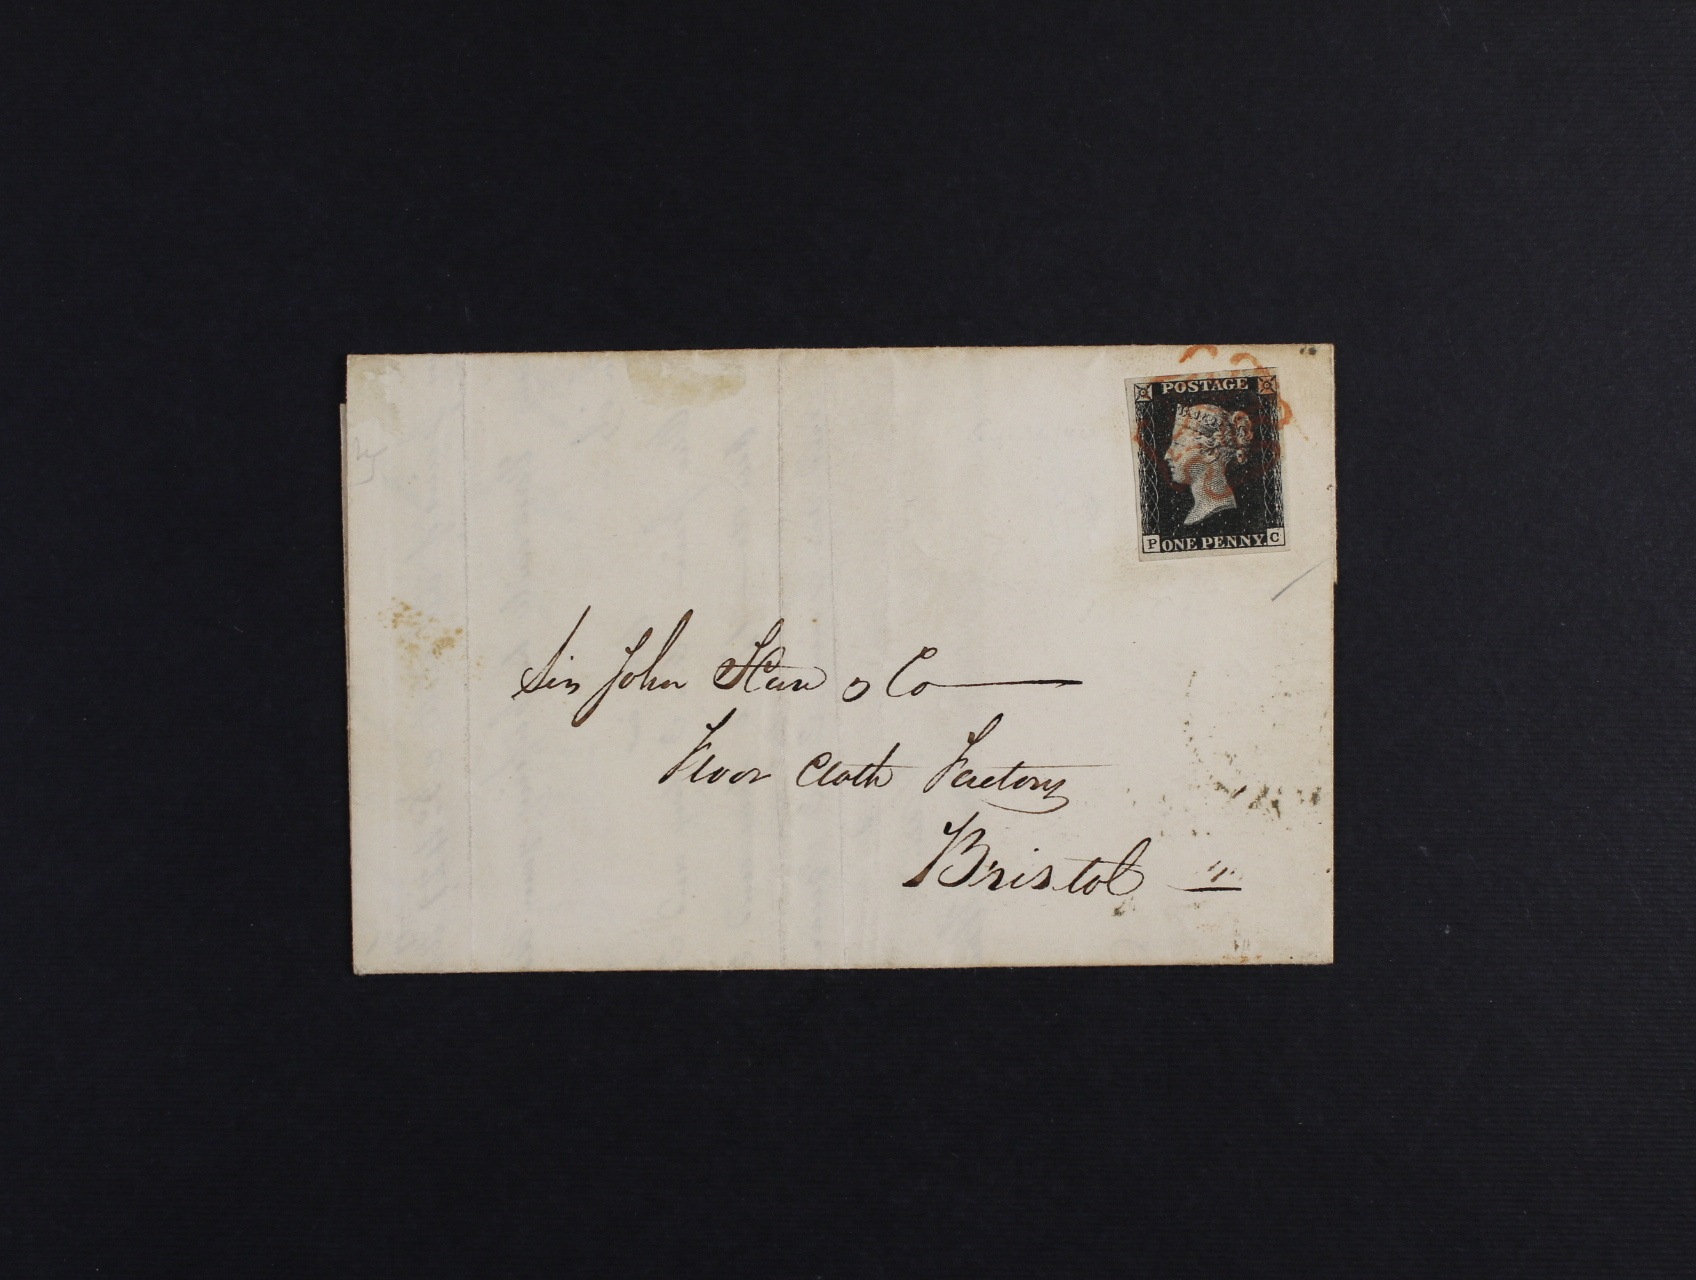 POSTAGE
P ONE PENNY. C
Sir John Hare & Co
Floor Cloth Factory
Bristol